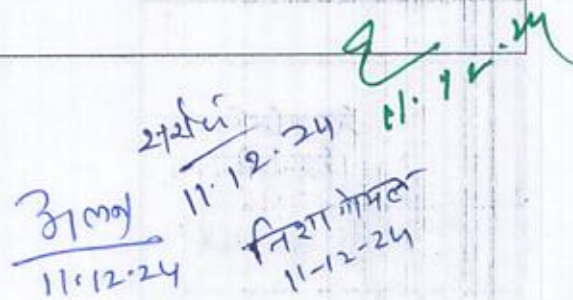 11.12.24
11.12.24
अलका
11.12.24
निशा गोयल
11-12-24